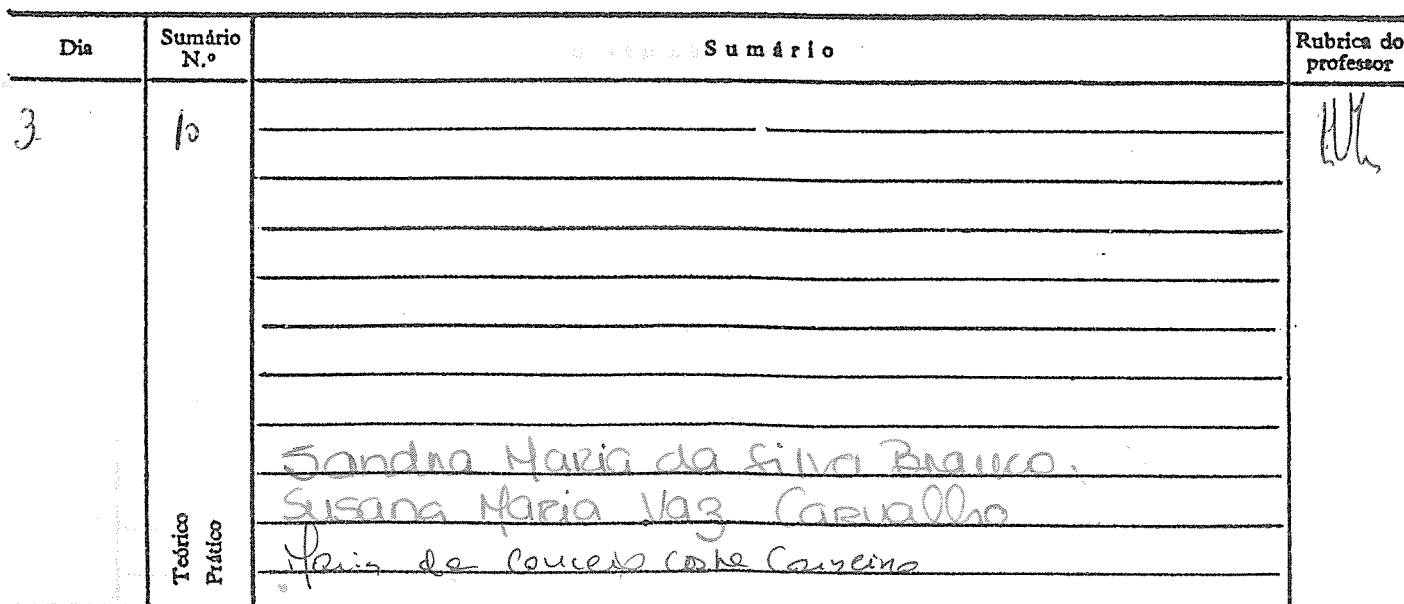 Dia Sumário N.º Sumário Rubrica do professor
3 10
Sandra Maria da Silva Branco.
Susana Maria Vaz Carvalho
Maria da Costa
Teórico
Prático